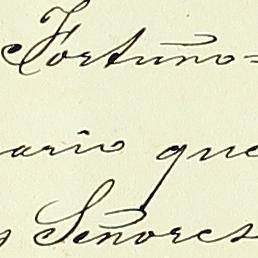 Fortuño=
ario que
s Señores